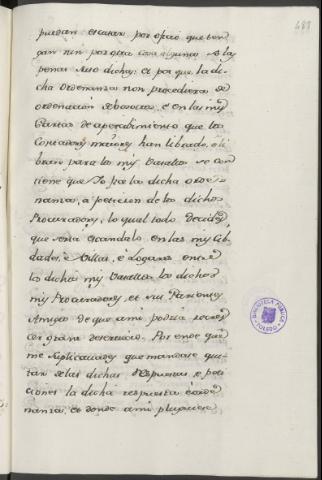 481
puedan escusar por oficio que ten
gan nin por otra cosa alguna so las
penas suso dichas: et pa que la di-
cha Ordenanza non procediera de
ordenación
e en las mis
Cartas de apercibimiento que los
Contadores mayores han librado, o li-
bran para los mis Vasallos se con
tiene que Yo fiz la dicha orde-
nanza, a peticion de los dichos
Procuradores, lo qual todo decides
que seria escandalo en las mis Cib-
dades, e Villas, e Logares entre
los dichos mis Vasallos los dichos
mis Procuradores, et sus Parientes
Amigos de que a mi podria recres-
cer grant deservicio. Por ende que
me suplicavades que mandase qui-
tar de las dichas respuestas, e peti
ciones la dicha respuesta e orde
nanza, et donde a mi plugiese
BIBLIOTECA PUBLICA
TOLEDO